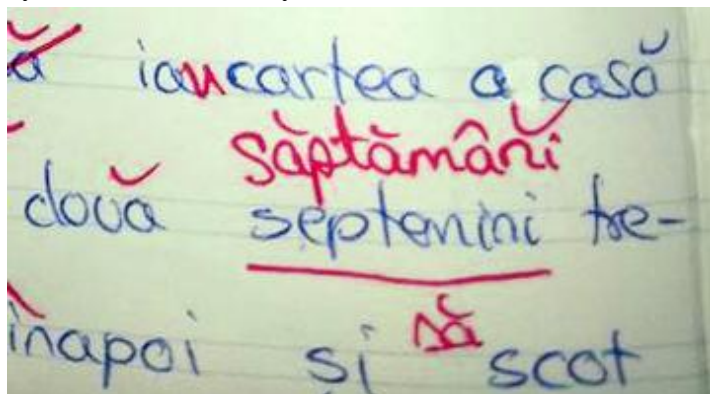 ă iau cartea a casă
săptămâni
două septenini tre-
înapoi și să scot